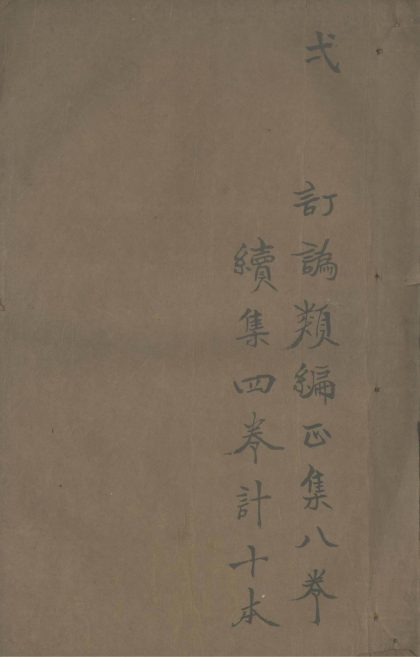 弍
訂譌類編正集八卷
續集四卷計十本